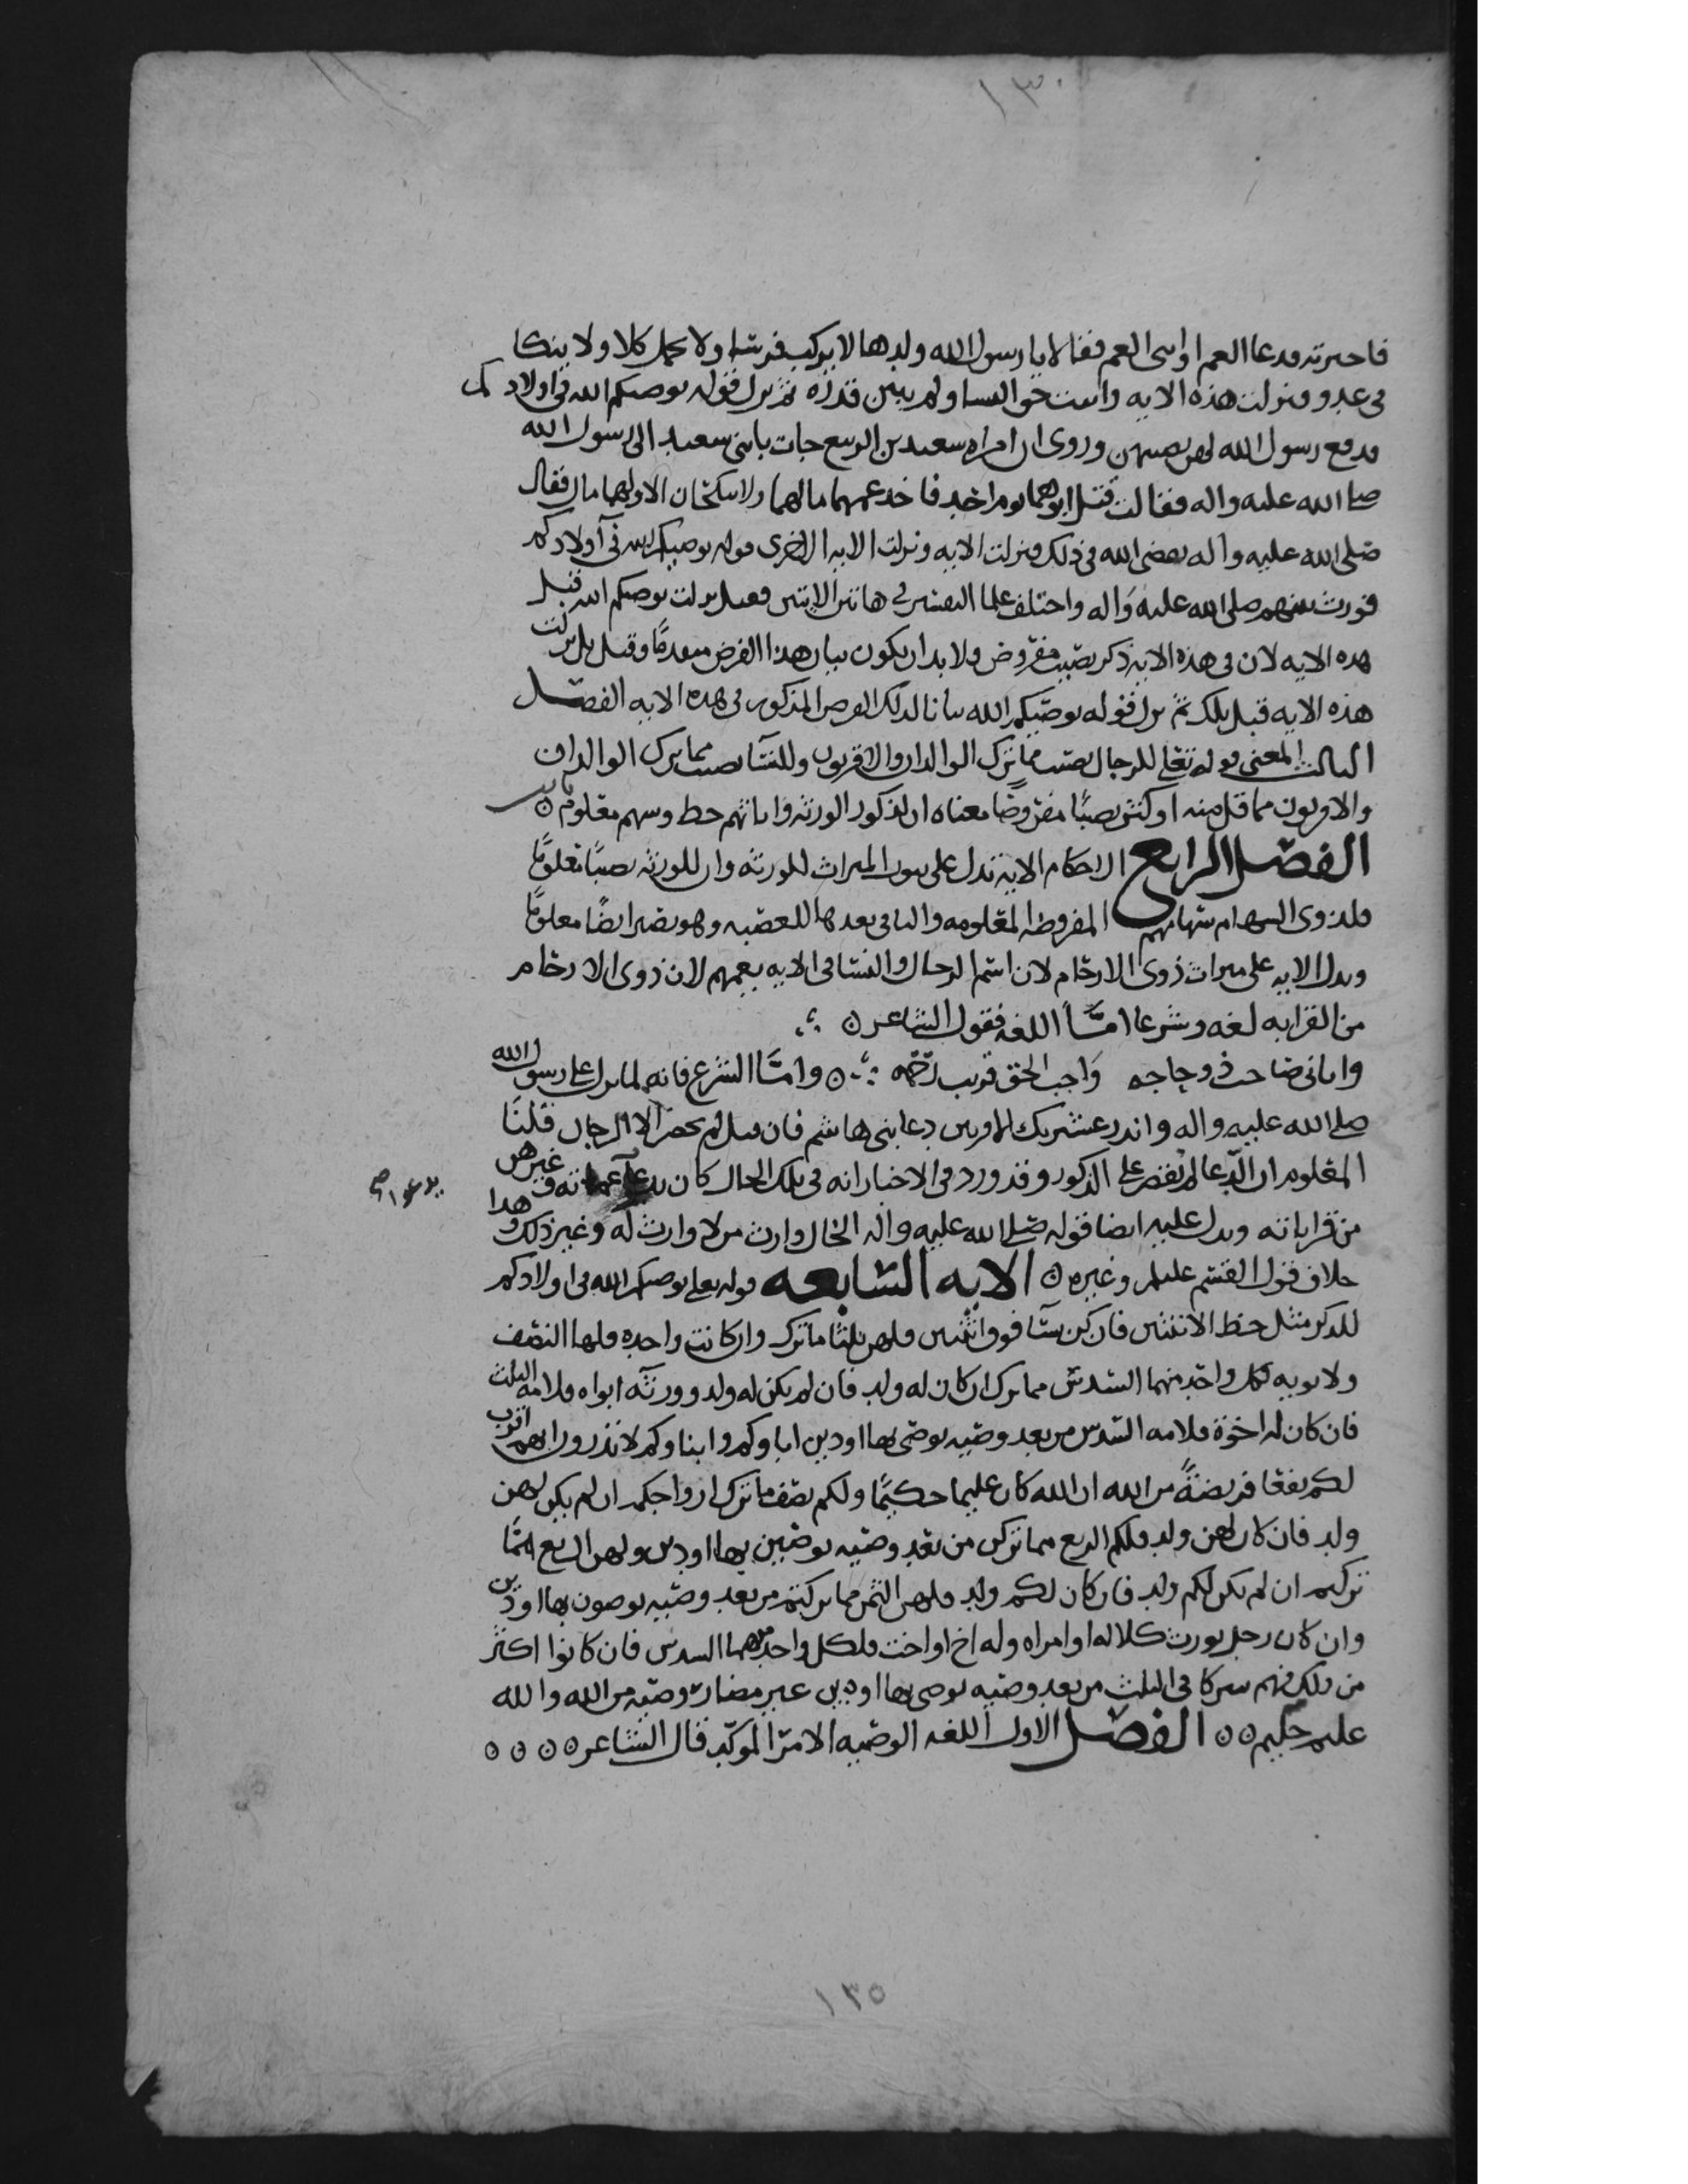 ١٣٠
فاخبرته فدعا العم او ابني العم فقالا يا رسول الله ولدها لا يركب فرسا ولا يحمل كلا ولا ينكا
في عدو فنزلت هذه الايه واثبتت حق النسا ولم يبين قدره ثم نزل قوله يوصيكم الله في اولادكم
فدفع رسول الله لهن نصيبهن وروي ان امراه سعد بن الربيع جات بابنتي سعد الى رسول الله
صلى الله عليه واله فقالت قتل ابوهما يوم احد فاخذ عمهما مالهما ولا تنكحان الا ولهما مال فقال
صلى الله عليه واله يقضي الله في ذلك فنزلت الايه ونزلت الايه الاخرى قوله يوصيكم الله في اولادكم
فورث منهم صلى الله عليه واله واختلف علما التفسير في هاتين الايتين فقيل نزلت يوصيكم الله قبل
هذه الايه لان في هذه الايه ذكر نصيب مفروض ولا بد ان يكون بيان هذا الفرض متقدمًا وقيل بل نزلت
هذه الايه قبل تلك ثم نزل قوله يوصيكم الله بيانا لذلك الفرض المذكور في هذه الايه الفصل
الثالث المعنى قوله تعلى للرجال نصيب مما ترك الوالدان والاقربون وللنسا نصيب مما ترك الوالدان
والاقربون مما قل منه او كثر نصيبًا مفروضًا معناه ان لذكور الورثه واناثهم حظ وسهم معلوم ثابت
الفصل الرابع الاحكام الايه تدل على ثبوت الميراث للورثه وان للورثه نصيبًا معلومًا
فلذوي السهام سهامهم المفروضه المعلومه والباقي بعدها للعصبه وهو يصير ايضًا معلومًا
وتدل الايه على ميراث ذوي الارحام لان اسم الرجال والنسا في الايه يعمهم لان ذوي الارحام
من القرابه لغه وشرعا امّا اللغه فقول الشاعر
واتاني صاحب ذو حاجه وَاجب الحق قريب رحمه وامّا الشرع فانه لما نزل على رسول الله
صلى الله عليه واله وانذر عشيرتك الاقربين دعا بني هاشم فان قيل لم يحضر الا الرجال قلنا
المعلوم ان الدّعا لم يقصر على الذكور وقد ورد في الاخبار انه في تلك الحال كان يدعا عماته وغيرهن
يدعوا صح
من قراباته ويدل عليه ايضا قوله صلى الله عليه واله الخال وارث من لا وارث له وغير ذلك وهذا
خلاف قول القسم عليلم وغيره الايه السابعه قوله تعلى يوصيكم الله في اولادكم
للذكر مثل حظ الانثيين فان كن نسآ فوق اثنتين فلهن ثلثا ما ترك وان كانت واحده فلها النصف
ولابويه لكل واحد منهما السدس مما ترك ان كان له ولد فان لم يكن له ولد وورثه ابواه فلامه الثلث
فان كان له اخوة فلامه السدس من بعد وصيه يوصى بها او دين اباوكم وابناوكم لا تدرون ايهم اقرب
لكم نفعا فريضةً من الله ان الله كان عليما حكيمًا ولكم نصف ما ترك ازواجكم ان لم يكن لهن
ولد فان كان لهن ولد فلكم الربع مما تركن من بعد وصيه يوصين بها او دين ولهن الربع ممّا
تركتم ان لم يكن لكم ولد فان كان لكم ولد فلهن الثمن مما تركتم من بعد وصيه توصون بها او دين
وان كان رجل يورث كلاله او امراه وله اخ او اخت فلكل واحد منهما السدس فان كانوا اكثر
من ذلك فهم شركا في الثلث من بعد وصيه يوصى بها او دين غير مضار وصيه من الله والله
عليم حليم الفصل الاول اللغه الوصيه الامر المؤكد قال الشاعر
١٣٥